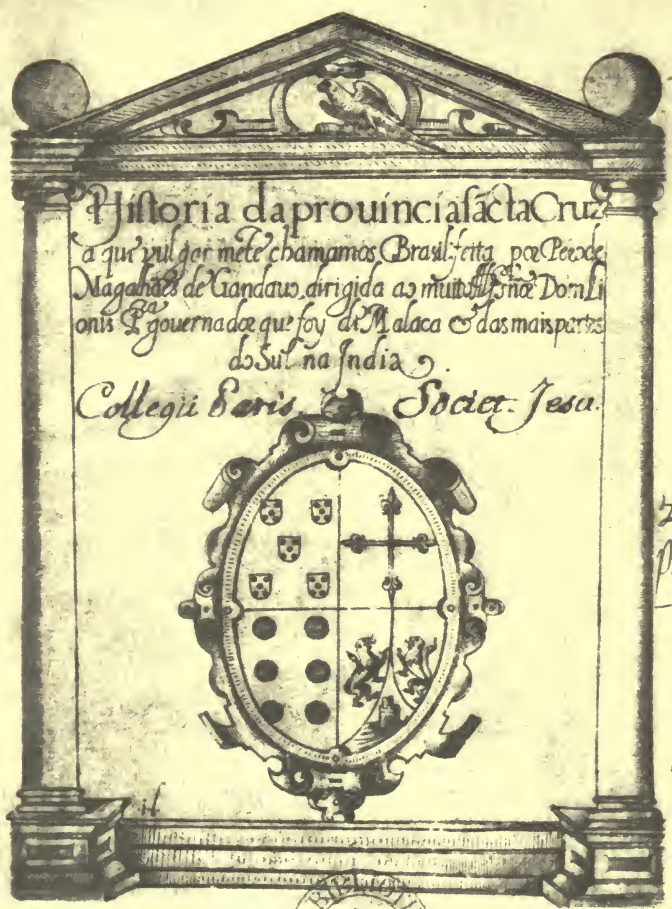 Historia da prouincia sãcta Cruz
a qui vulgar mẽte chamamos Brasil: feita por Pero de
Magalhães de Gandauo, dirigida ao muito Ill.e sñor Dom Li
onis P.ra gouernador que foy de Malaca & das mais partes
do Sul na India
Collegii Paris. Societ. Jesu.